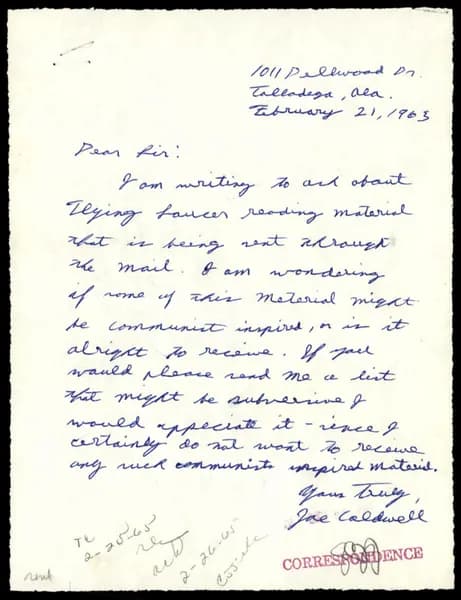 1011 Dellwood Dr.
Talladega, Ala.
February 21, 1963
Dear Sir:
I am writing to ask about
Flying Saucer reading material
that is being sent through
the mail. I am wondering
if some of this material might
be communist inspired, or is it
alright to receive. If you
would please send me a list
that might be subversive I
would appeciate it - since I
certainly do not want to receive
any such communists inspired material.
Yours Truly,
Joe Caldwell
CORRESPONDENCE
2-25-65
2-26-65